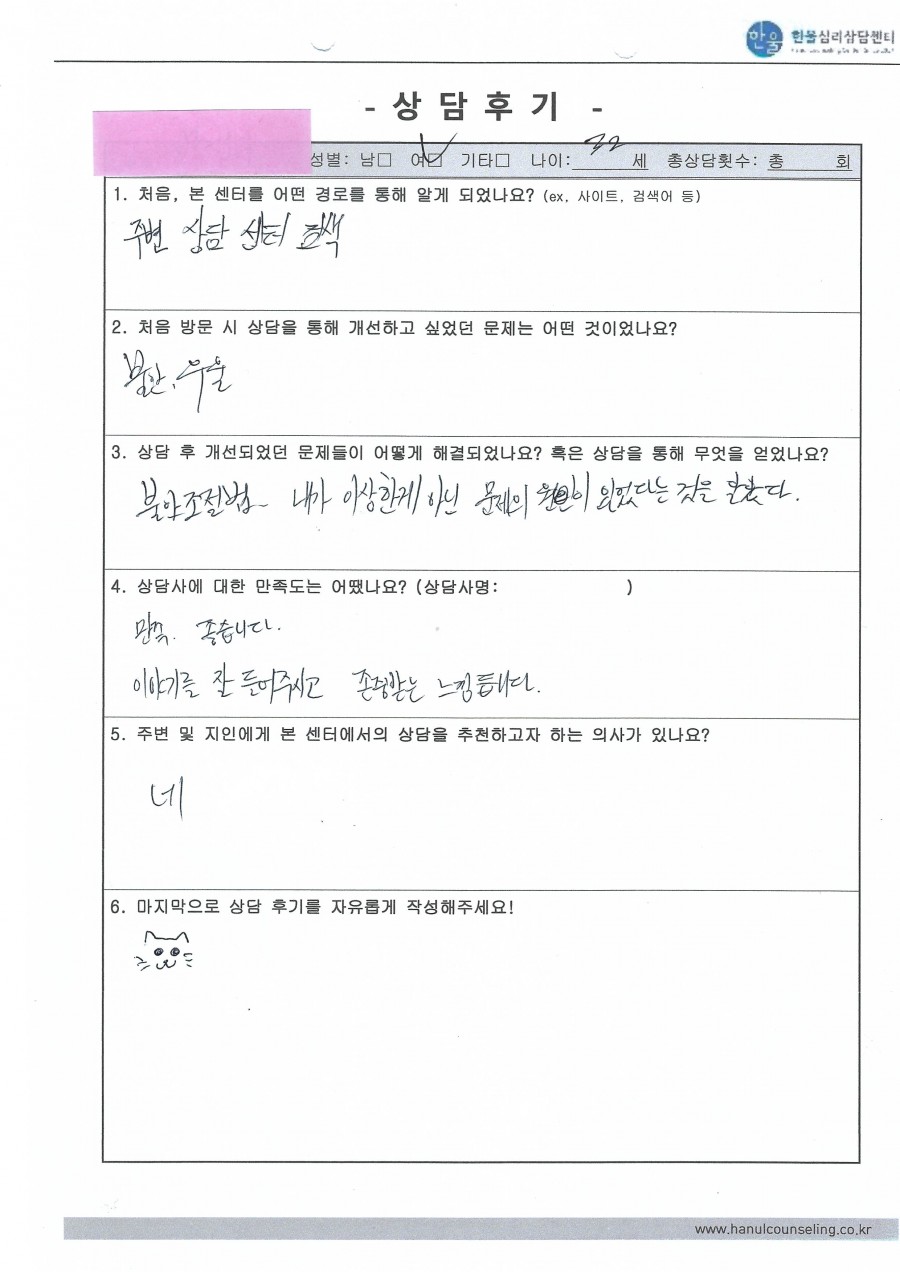 한울 한울심리상담센터
- 상 담 후 기 -
성별: 남□ 여☑ 기타□ 나이: 32 세 총상담횟수: 총 회
1. 처음, 본 센터를 어떤 경로를 통해 알게 되었나요? (ex. 사이트, 검색어 등)
주변 상담 센터 검색
2. 처음 방문 시 상담을 통해 개선하고 싶었던 문제는 어떤 것이었나요?
불안, 우울
3. 상담 후 개선되었던 문제들이 어떻게 해결되었나요? 혹은 상담을 통해 무엇을 얻었나요?
불안조절법~ 내가 이상한게 아닌 문제의 원인이 있었다는 것을 알았다.
4. 상담사에 대한 만족도는 어땠나요? (상담사명: )
만족. 좋습니다.
이야기를 잘 들어주시고 존중받는 느낌 듭니다.
5. 주변 및 지인에게 본 센터에서의 상담을 추천하고자 하는 의사가 있나요?
네
6. 마지막으로 상담 후기를 자유롭게 작성해주세요!
www.hanulcounseling.co.kr